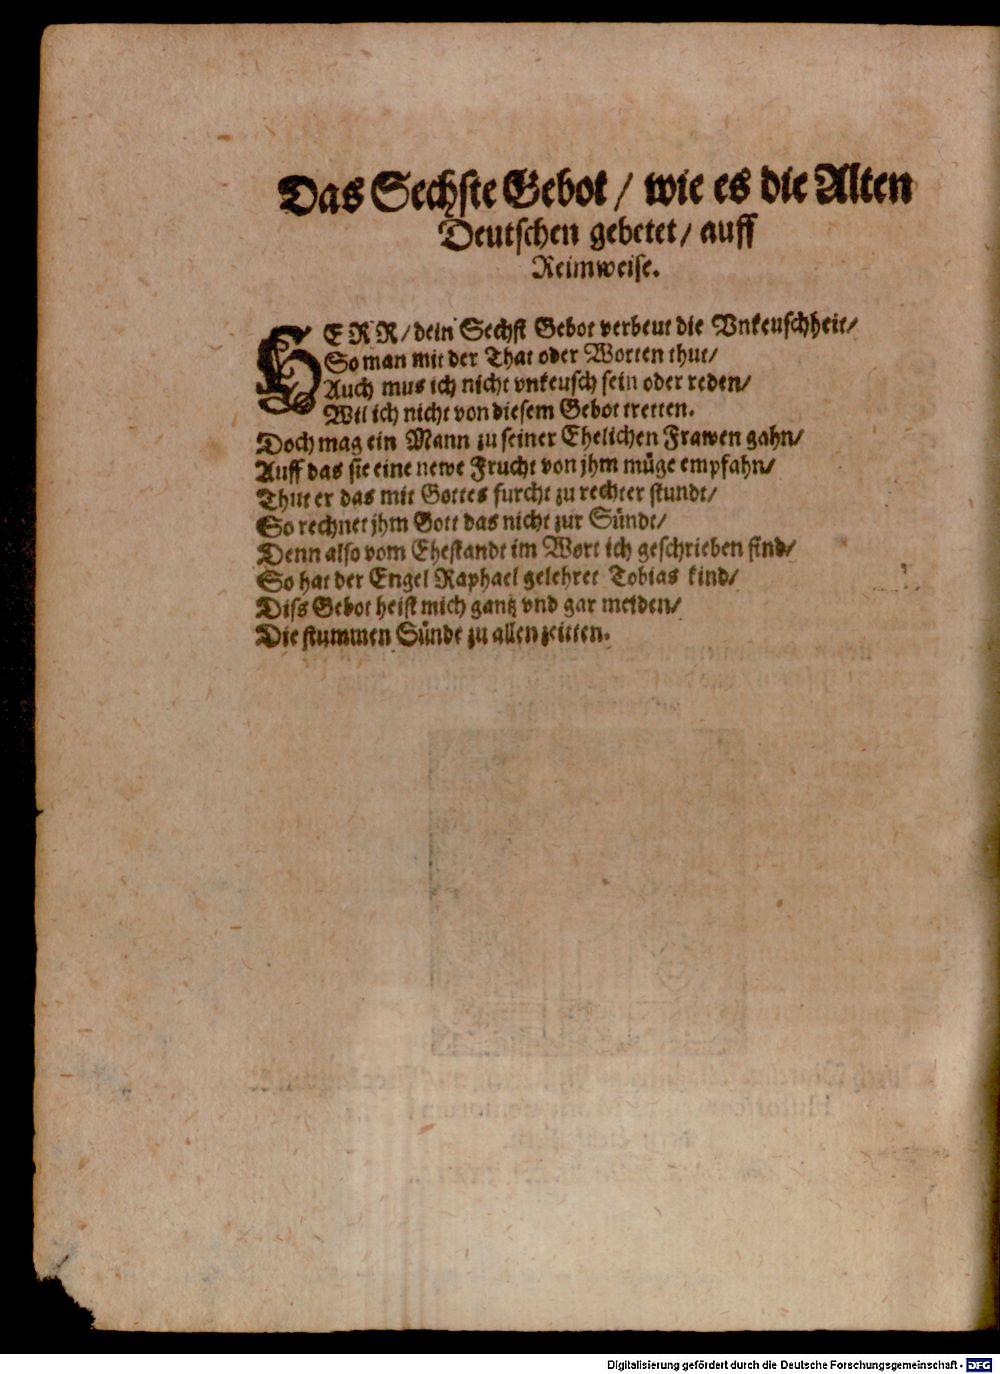 Das Sechste Gebot / wie es die Alten
Deutschen gebetet / auff
Reimweise.
HERR / dein Sechst Gebot verbeut die Vnkeuschheit /
So man mit der That oder Worten thut /
Auch mus ich nicht vnkeusch sein oder reden /
Wil ich nicht von diesem Gebot tretten.
Doch mag ein Mann zu seiner Ehelichen Frawen gahn /
Auff das sie eine newe Frucht von jhm müge empfahn /
Thut er das mit Gottes furcht zu rechter stundt /
So rechnet jhm Gott das nicht zur Sündt /
Denn also vom Ehestandt im Wort ich geschrieben find /
So hat der Engel Raphael gelehret Tobias kind /
Diss Gebot heist mich gantz vnd gar meiden /
Die stummen Sünde zu allen zeitten.
Digitalisierung gefördert durch die Deutsche Forschungsgemeinschaft - DFG